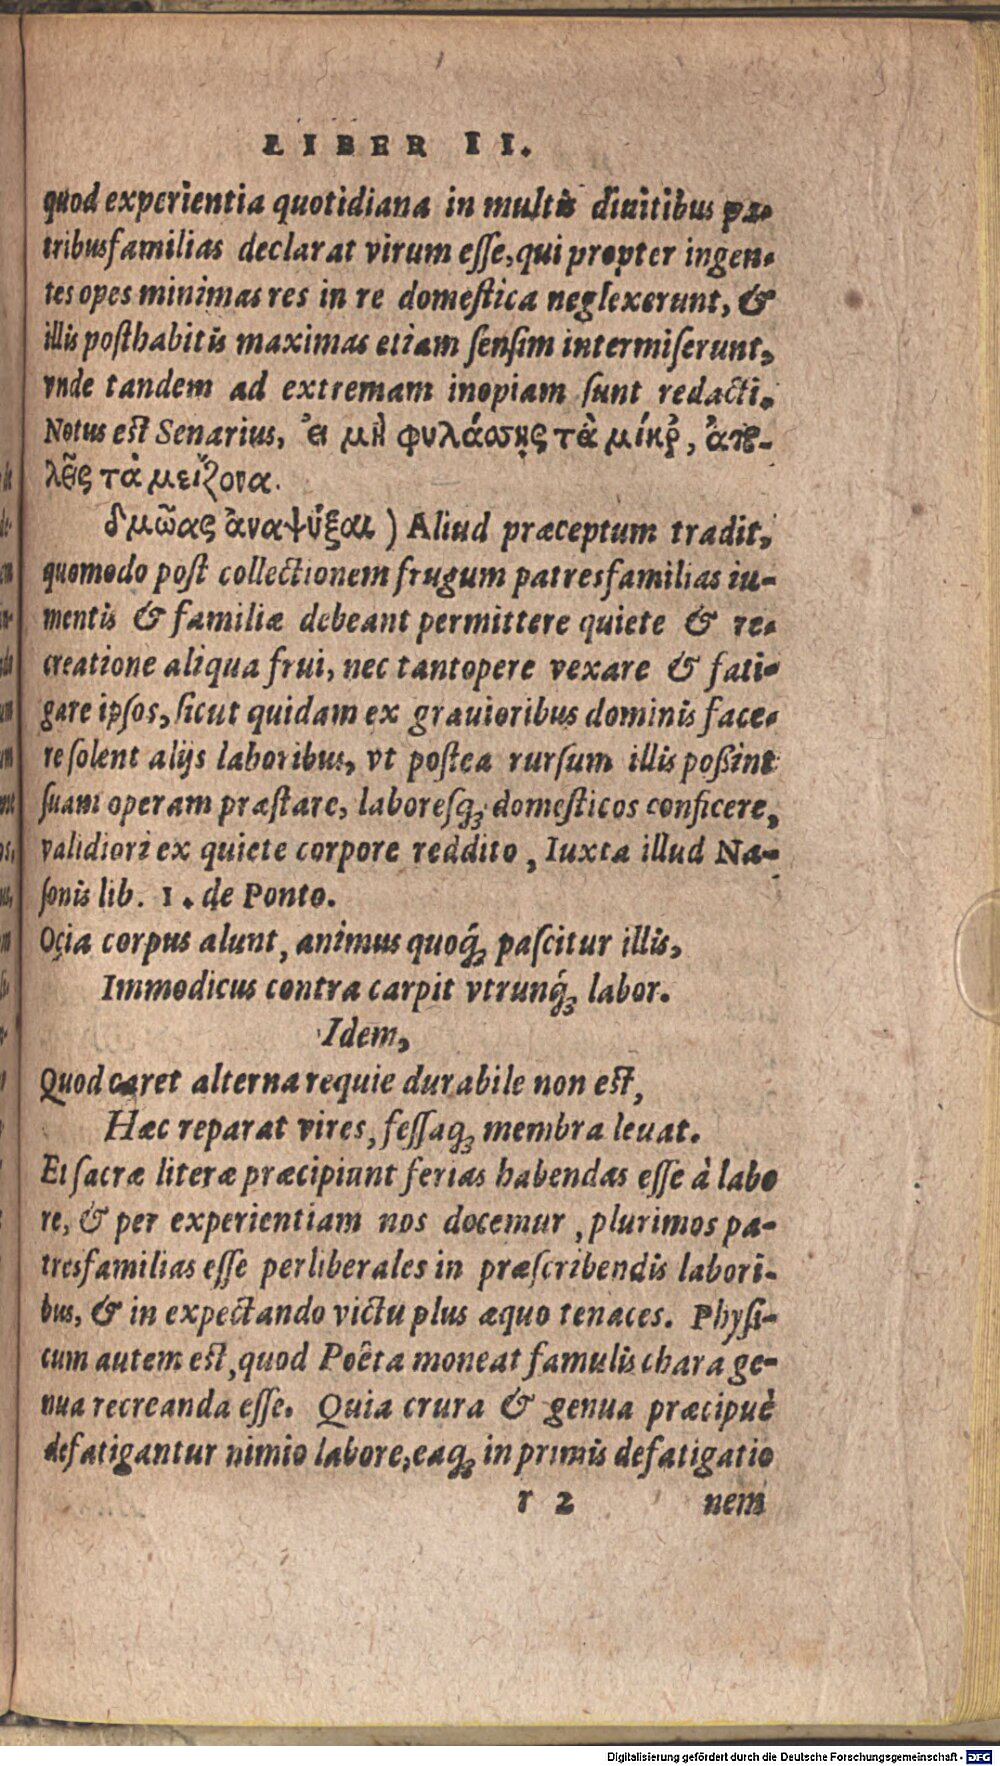 LIBER II.
quod experientia quotidiana in multis diuitibus pa-
tribusfamilias declarat virum esse, qui propter ingen-
tes opes minimas res in re domestica neglexerunt, &
illis posthabitis maximas etiam sensim intermiserunt,
vnde tandem ad extremam inopiam sunt redacti.
Notus est Senarius, εἰ μὴ φυλάσσῃς τὰ μίκρ', ἀπο-
λεῖς τὰ μείζονα.
δμῶας ἀναψῦξαι) Aliud præceptum tradit,
quomodo post collectionem frugum patresfamilias iu-
mentis & familiæ debeant permittere quiete & re-
creatione aliqua frui, nec tantopere vexare & fati-
gare ipsos, sicut quidam ex grauioribus dominis face-
re solent alijs laboribus, vt postea rursum illis possint
suam operam præstare, laboresq; domesticos conficere,
validiori ex quiete corpore reddito, Iuxta illud Na-
sonis lib. 1. de Ponto.
Ocia corpus alunt, animus quoq; pascitur illis,
Immodicus contra carpit vtrunq; labor.
Idem,
Quod caret alterna requie durabile non est,
Hæc reparat vires, fessaq; membra leuat.
Et sacræ literæ præcipiunt ferias habendas esse à labo
re, & per experientiam nos docemur, plurimos pa-
tresfamilias esse perliberales in præscribendis labori-
bus, & in expectando victu plus æquo tenaces. Physi-
cum autem est, quod Poëta moneat famulis chara ge-
nua recreanda esse. Quia crura & genua præcipuè
defatigantur nimio labore, eaq; in primis defatigatio
r 2 nem
Digitalisierung gefördert durch die Deutsche Forschungsgemeinschaft - DFG